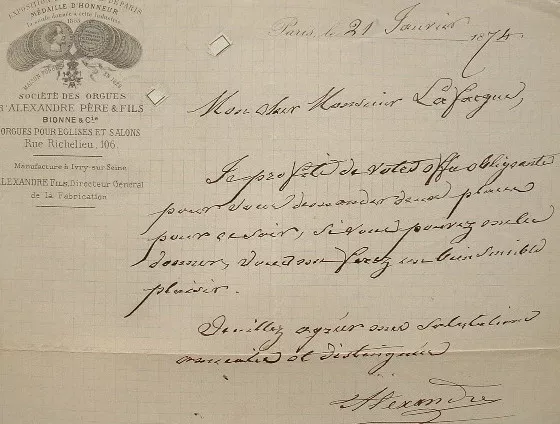 EXPOSITION UNIVERSELLE DE PARIS
MÉDAILLE D'HONNEUR
La seule donnée à cette Industrie
SOCIÉTÉ DES ORGUES
D'ALEXANDRE PÈRE & FILS
BIONNE & Cie
ORGUES POUR EGLISES ET SALONS
Rue Richelieu, 106.
Manufacture à Ivry-sur-Seine
ALEXANDRE FILS, Directeur Général
de la Fabrication
Paris, le 21 Janvier 1874
Mon cher Monsieur Lafargue,
Je profite de votre offre obligeante
pour vous demander deux places
pour ce soir, si vous pouvez me les
donner, vous me ferez un bien sensible
plaisir.
Veuillez agréer mes salutations
amicales et distinguées
Alexandre